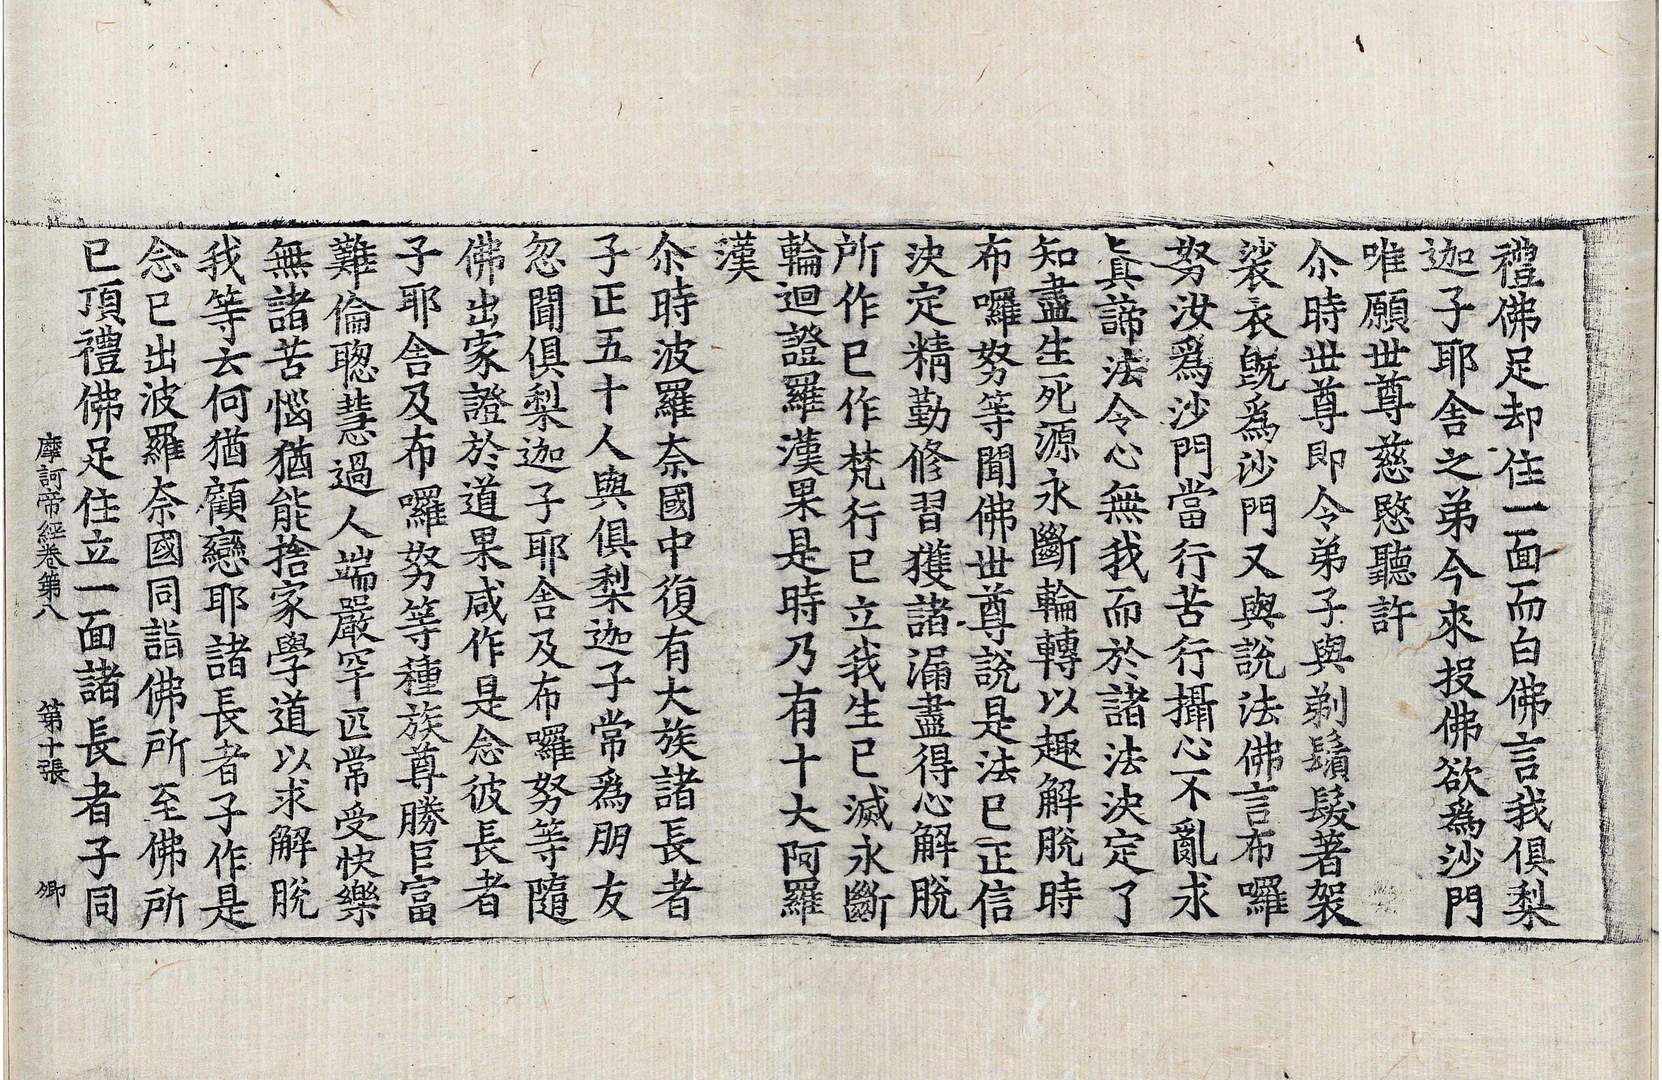 禮佛足却住一面而白佛言我俱梨
迦子耶舍之弟今來投佛欲爲沙門
唯願世尊慈愍聽許
尒時世尊即令弟子與剃鬚髮著袈
裟衣旣爲沙門又與說法佛言布囉
努汝爲沙門當行苦行攝心不亂求
眞諦法令心無我而於諸法決定了
知盡生死源永斷輪轉以趣解脫時
布囉努等聞佛世尊說是法已正信
決定精勤修習獲諸漏盡得心解脫
所作已作梵行已立我生已滅永斷
輪迴證羅漢果是時乃有十大阿羅
漢
尒時波羅奈國中復有大族諸長者
子正五十人與俱梨迦子常爲朋友
忽聞俱梨迦子耶舍及布囉努等隨
佛出家證於道果咸作是念彼長者
子耶舍及布囉努等種族尊勝巨富
難倫聦慧過人端嚴罕匹常受快樂
無諸苦惱猶能捨家學道以求解脫
我等云何猶顧戀耶諸長者子作是
念已出波羅奈國同詣佛所至佛所
已頂禮佛足住立一面諸長者子同
摩訶帝經卷第八 第十張 卿